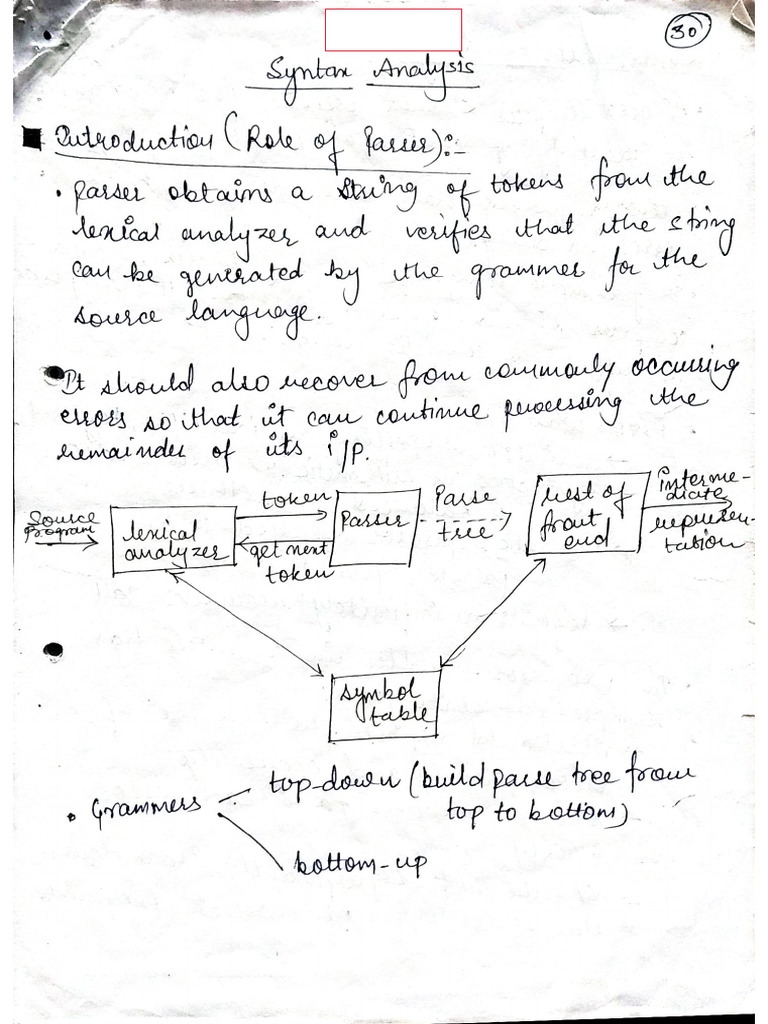 30
Syntax Analysis
Introduction (Role of Parser):-
• Parser obtains a string of tokens from the
lexical analyzer and verifies that the string
can be generated by the grammer for the
source language.
• It should also recover from commonly occurring
errors so that it can continue processing the
remainder of its i/p.
Source
Program
lexical
analyzer
token
get next
token
Parser
Parse
tree
rest of
front
end
interme-
diate
represen-
tation
symbol
table
• Grammers
top-down (build parse tree from
top to bottom)
bottom-up